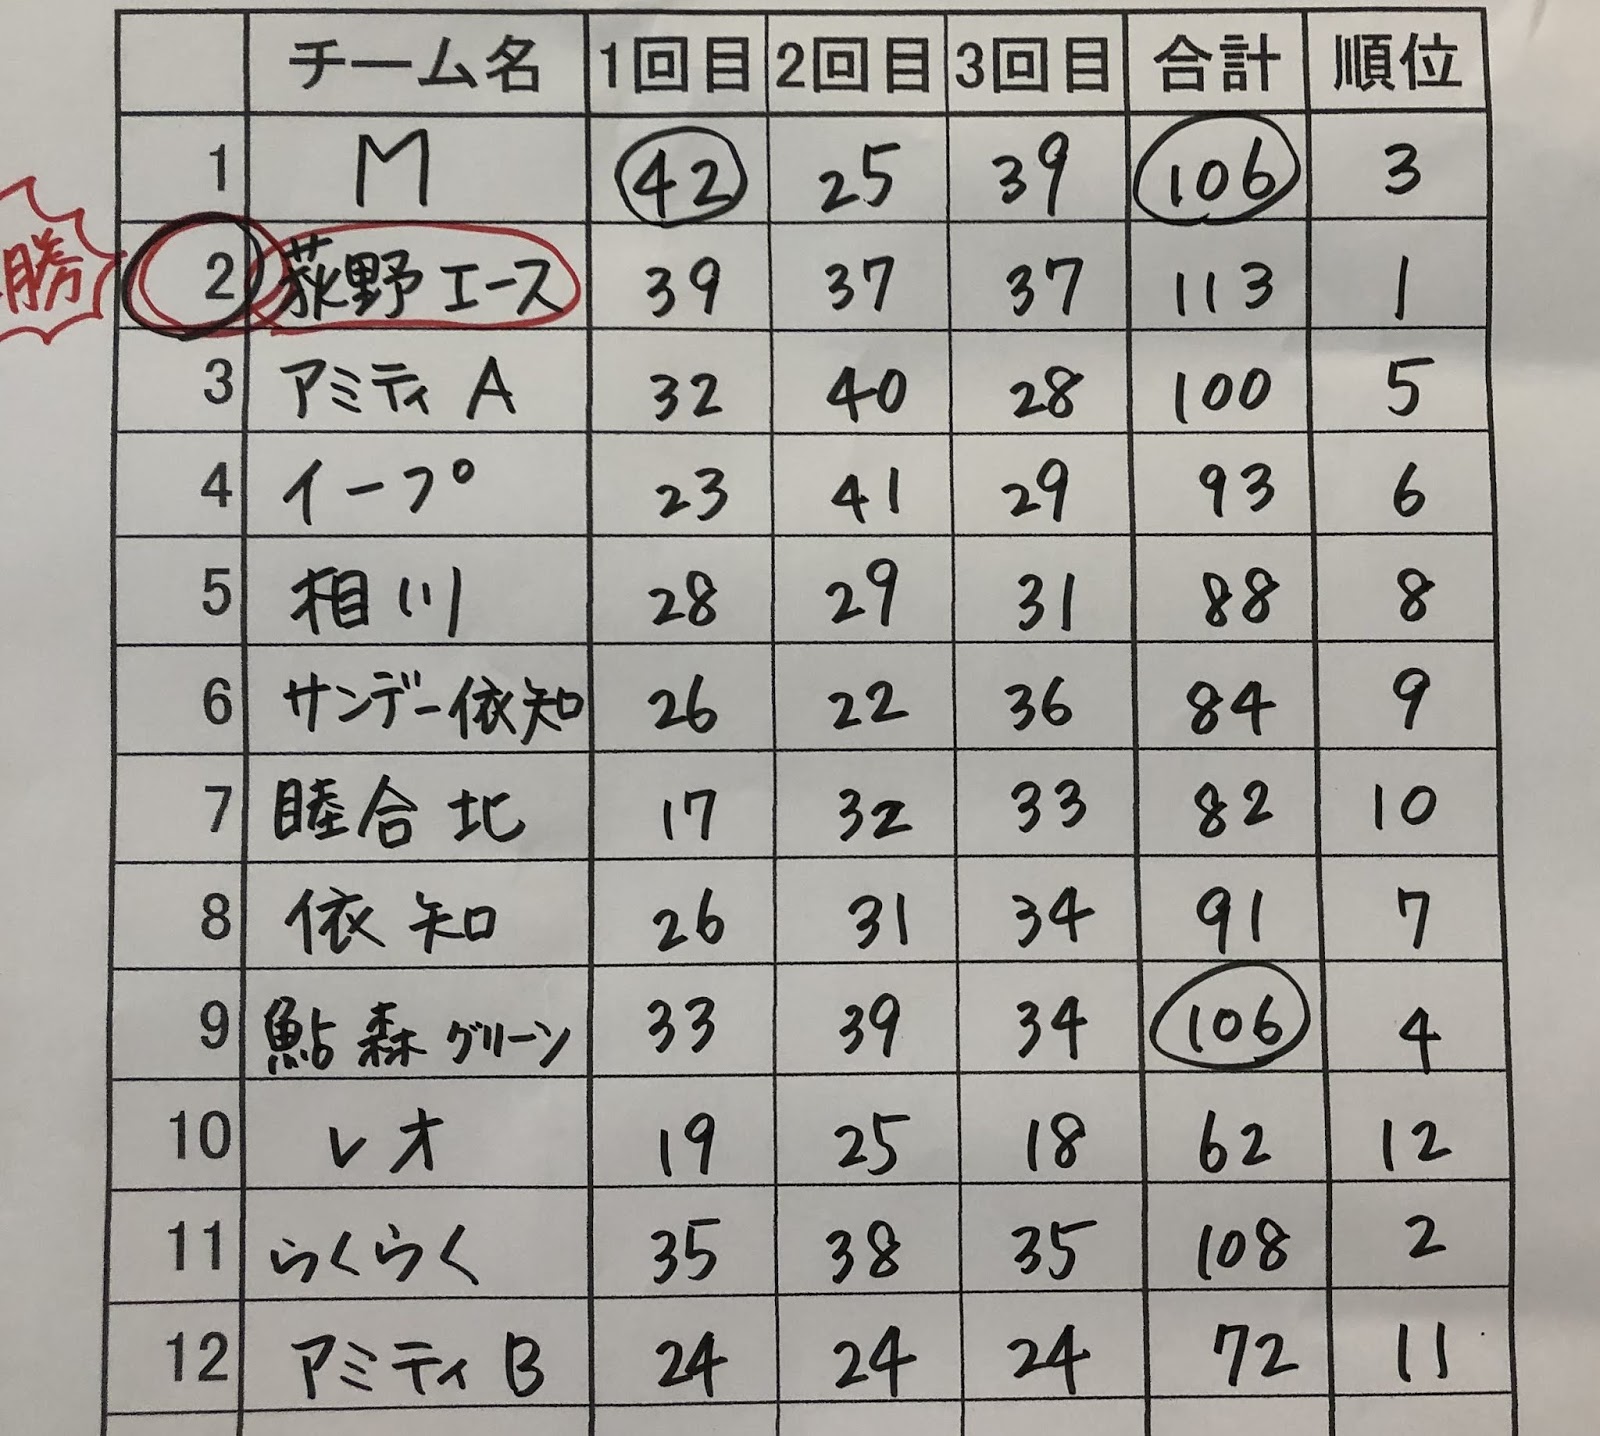 チーム名 1回目 2回目 3回目 合計 順位
1 M 42 25 39 106 3
勝
2 荻野エース 39 37 37 113 1
3 アミティ A 32 40 28 100 5
4 イープ 23 41 29 93 6
5 相川 28 29 31 88 8
6 サンデー依知 26 22 36 84 9
7 睦合北 17 32 33 82 10
8 依知 26 31 34 91 7
9 鮎森グリーン 33 39 34 106 4
10 レオ 19 25 18 62 12
11 らくらく 35 38 35 108 2
12 アミティ B 24 24 24 72 11